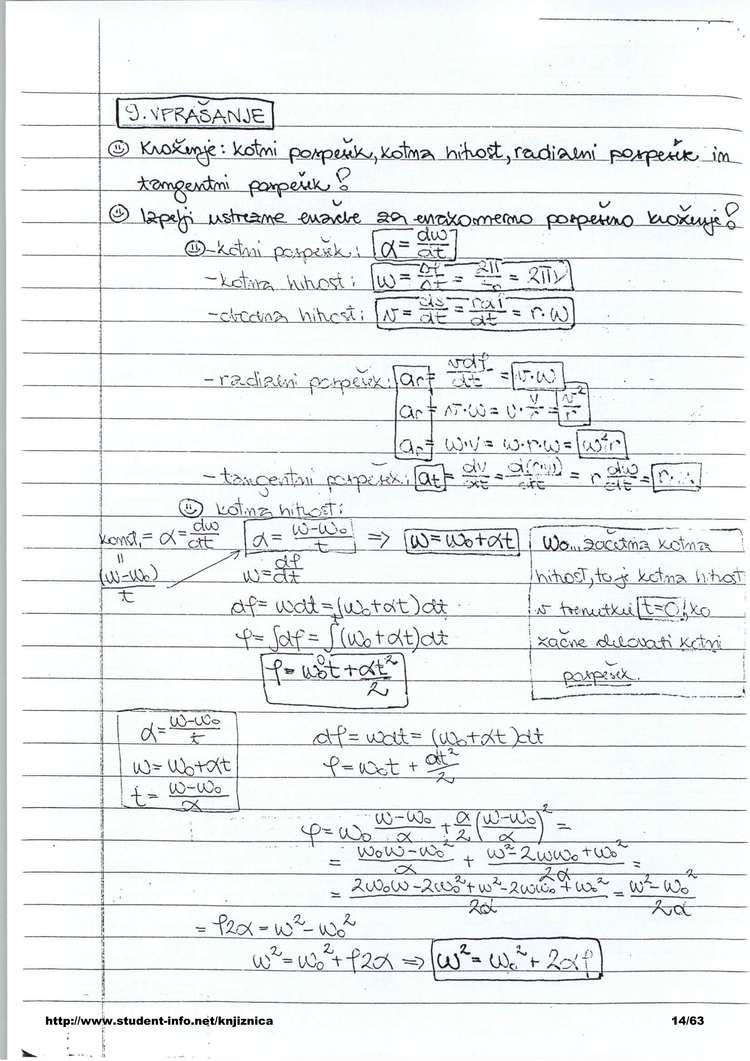 9. VPRAŠANJE
Kroženje: kotni pospešek, kotna hitrost, radialni pospešek in
tangentni pospešek!
Izpelji ustrezne enačbe za enakomerno pospešeno kroženje!
- kotni pospešek: α = dω/dt
- kotna hitrost: ω = Δφ/Δt = 2π/t₀ = 2πν
- obodna hitrost: v = ds/dt = rdφ/dt = r·ω
- radialni pospešek: ar = vdφ/dt = v·ω
ar = v·ω = v·v/r = v²/r
ar = ω·v = ω·r·ω = ω²r
- tangentni pospešek: at = dv/dt = d(r·ω)/dt = r dω/dt = r·α
kotna hitrost:
konst. = α = dω/dt α = ω-ω₀/t ⇒ ω = ω₀+αt
= (ω-ω₀)/t
ω = dφ/dt
dφ = ωdt = (ω₀+αt)dt
φ = ∫dφ = ∫₀ᵗ(ω₀+αt)dt
φ = ω₀t + αt²/2
ω₀... začetna kotna
hitrost, to je kotna hitrost
v trenutku t=0, ko
začne delovati kotni
pospešek.
α = ω-ω₀/t
ω = ω₀+αt
t = ω-ω₀/α
dφ = ωdt = (ω₀+αt)dt
φ = ω₀t + αt²/2
φ = ω₀ ω-ω₀/α + α/2 (ω-ω₀/α)² =
= ω₀ω-ω₀²/α + ω²-2ωω₀+ω₀²/2α =
= 2ω₀ω-2ω₀²+ω²-2ωω₀+ω₀²/2α = ω²-ω₀²/2α
= φ2α = ω²-ω₀²
ω² = ω₀²+φ2α ⇒ ω² = ω₀²+2αφ
http://www.student-info.net/knjiznica 14/63